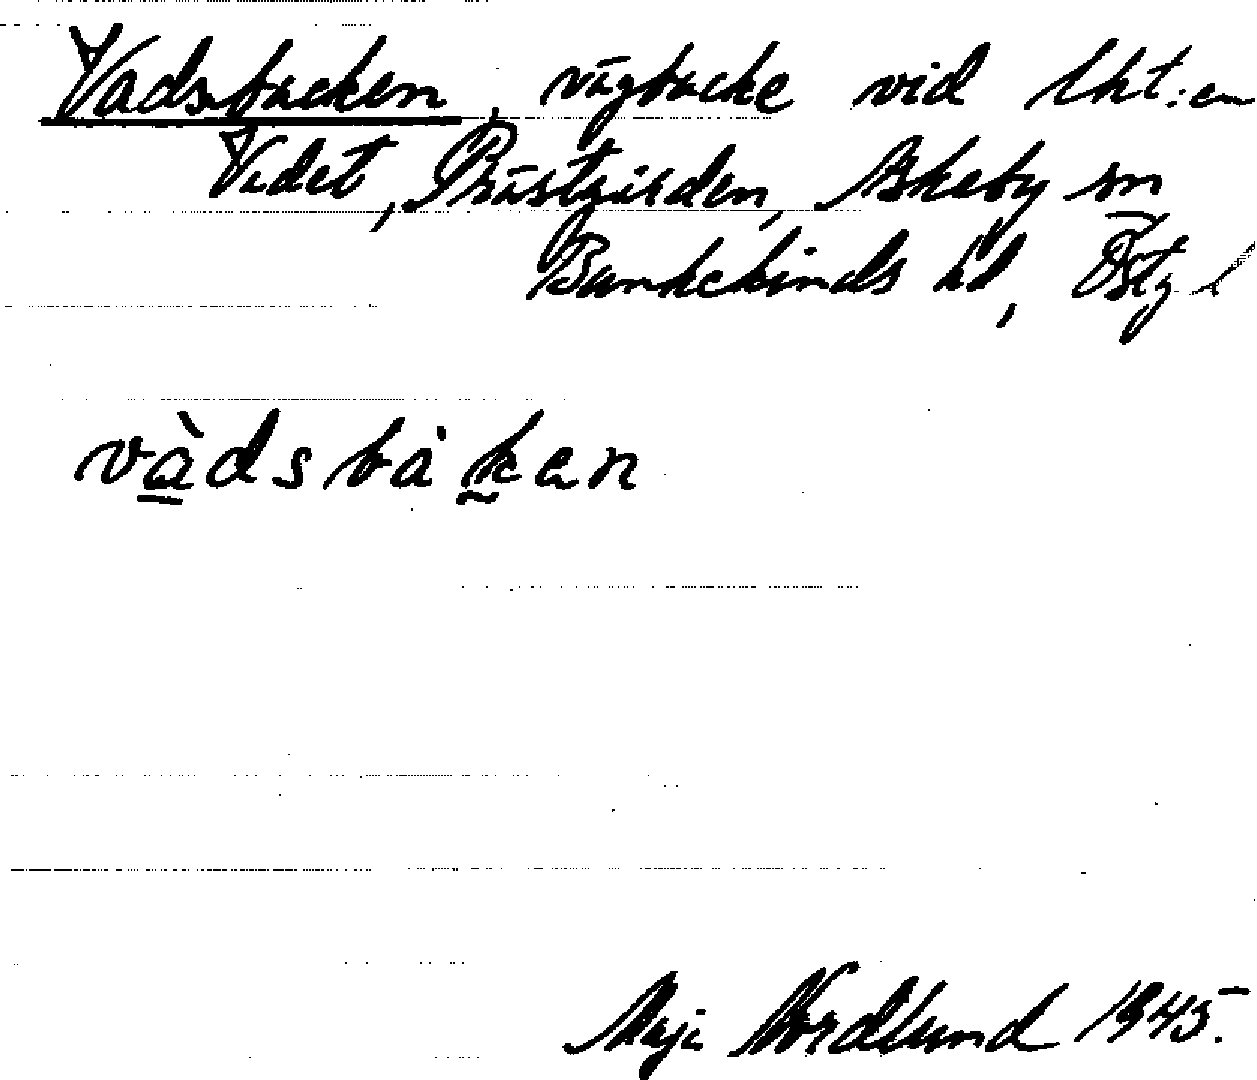 Vadsbacken, vägbacke vid lht:en
Vadet, Prästgården, Askeby sn
Bankekinds hd, Östg l
vàdsbàken
Maja Nordlund 1945.